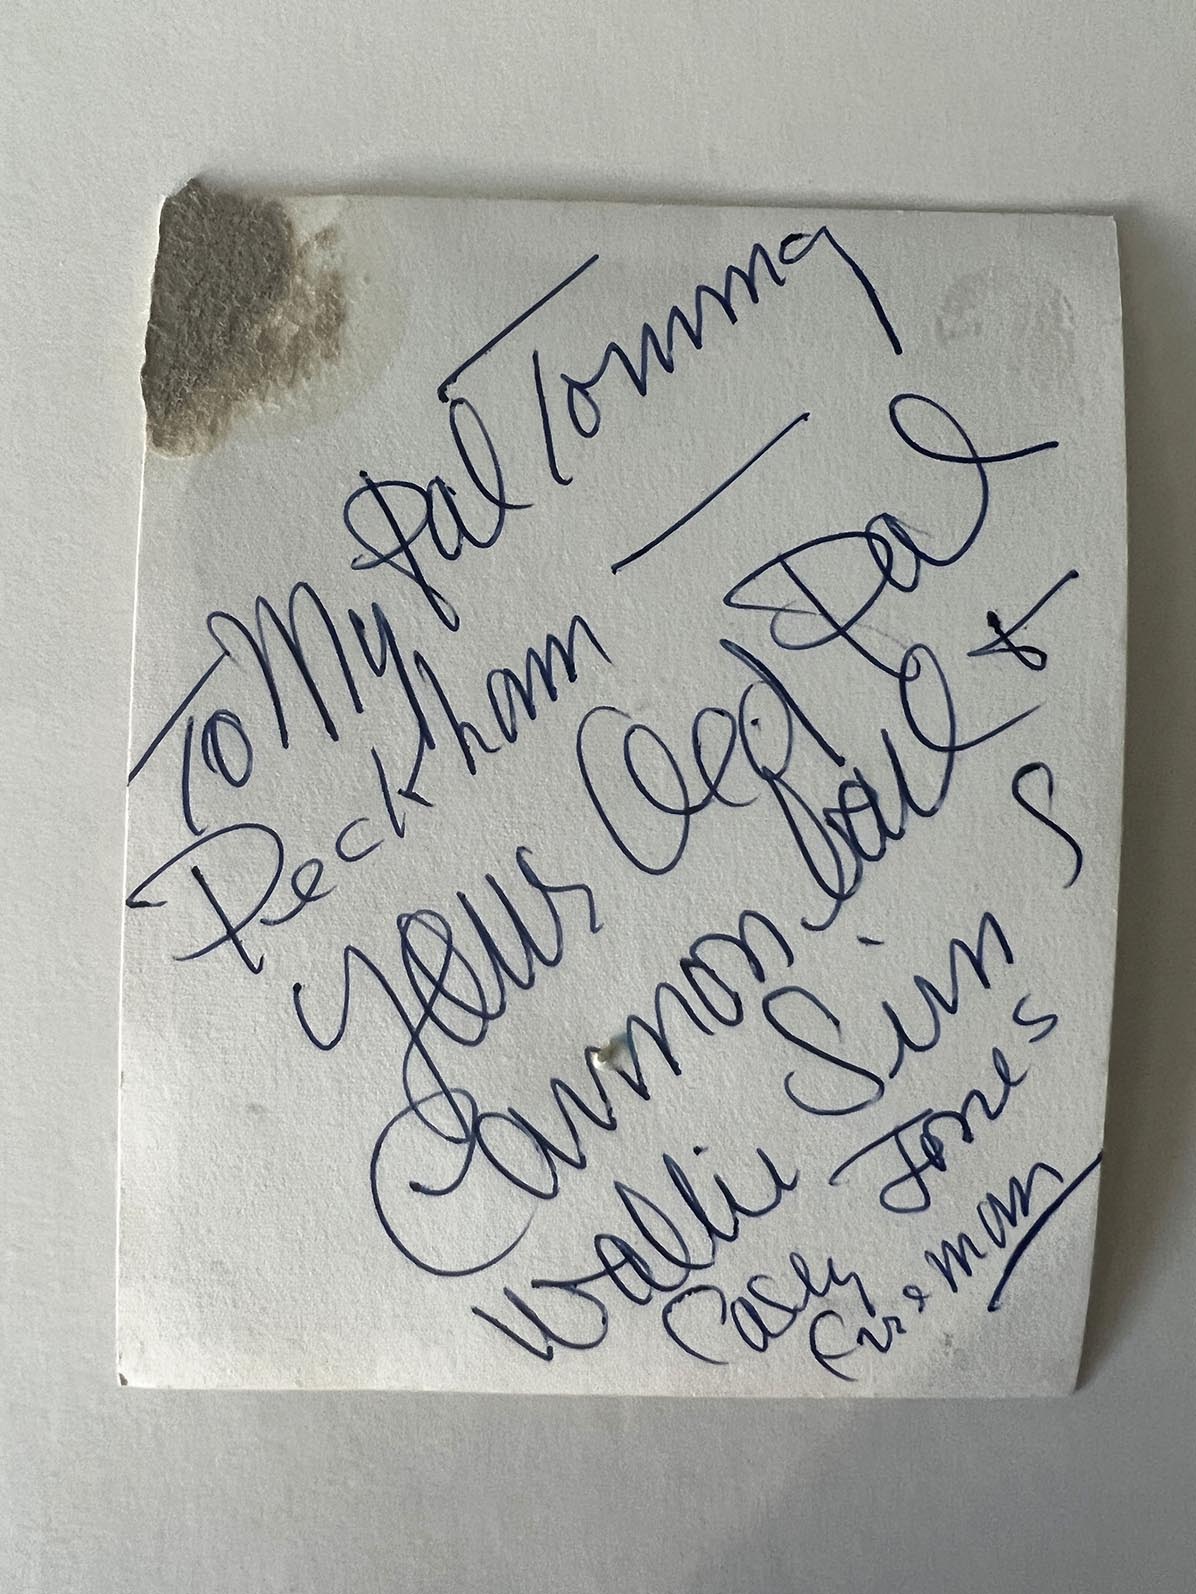 To My Pal Tommy
Peckham
Your Old Pal
Cannon ball &
Wallie Sims
Casey Jones
Fireman